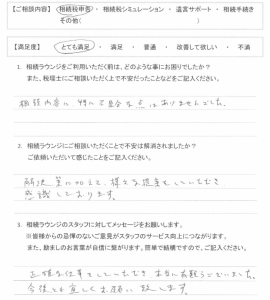 【ご相談内容】 相続税申告 ・ 相続税シミュレーション ・ 遺言サポート ・ 相続手続き
その他( )
【満足度】 とても満足 ・ 満足 ・ 普通 ・ 改善して欲しい ・ 不満
1. 相続ラウンジをご利用いただく前は、どのような事にお困りでしたか?
また、税理士にご相談いただく上で不安だったことなどをご記入ください。
相談内容に特に不安な点はありませんでした。
2. 相続ラウンジにご相談いただくことで不安は解消されましたか?
ご依頼いただいて感じたことをご記入ください。
解決策に加えて、様々な提案をしていただき
感謝しております。
3. 相続ラウンジのスタッフに対してメッセージをお願いします。
※皆様からの忌憚のないご意見がスタッフのサービス向上につながります。
また、励ましのお言葉が自信に繋がります。簡単で結構ですので、ご記入ください。
正確な仕事をしていただき 本当に有難うございました。
今後とも宜しくお願い致します。